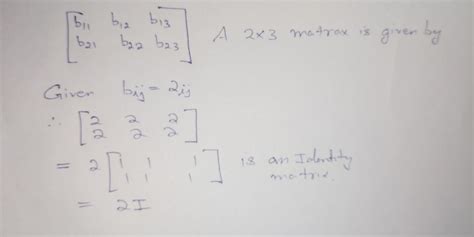 [b11 b12 b13
b21 b22 b23] A 2x3 matrax is given by
Given bij = 2ij
∴ [2 2 2
2 2 2]
= 2 [1 1 1
1 1 1] is an Identity matrix.
= 2I